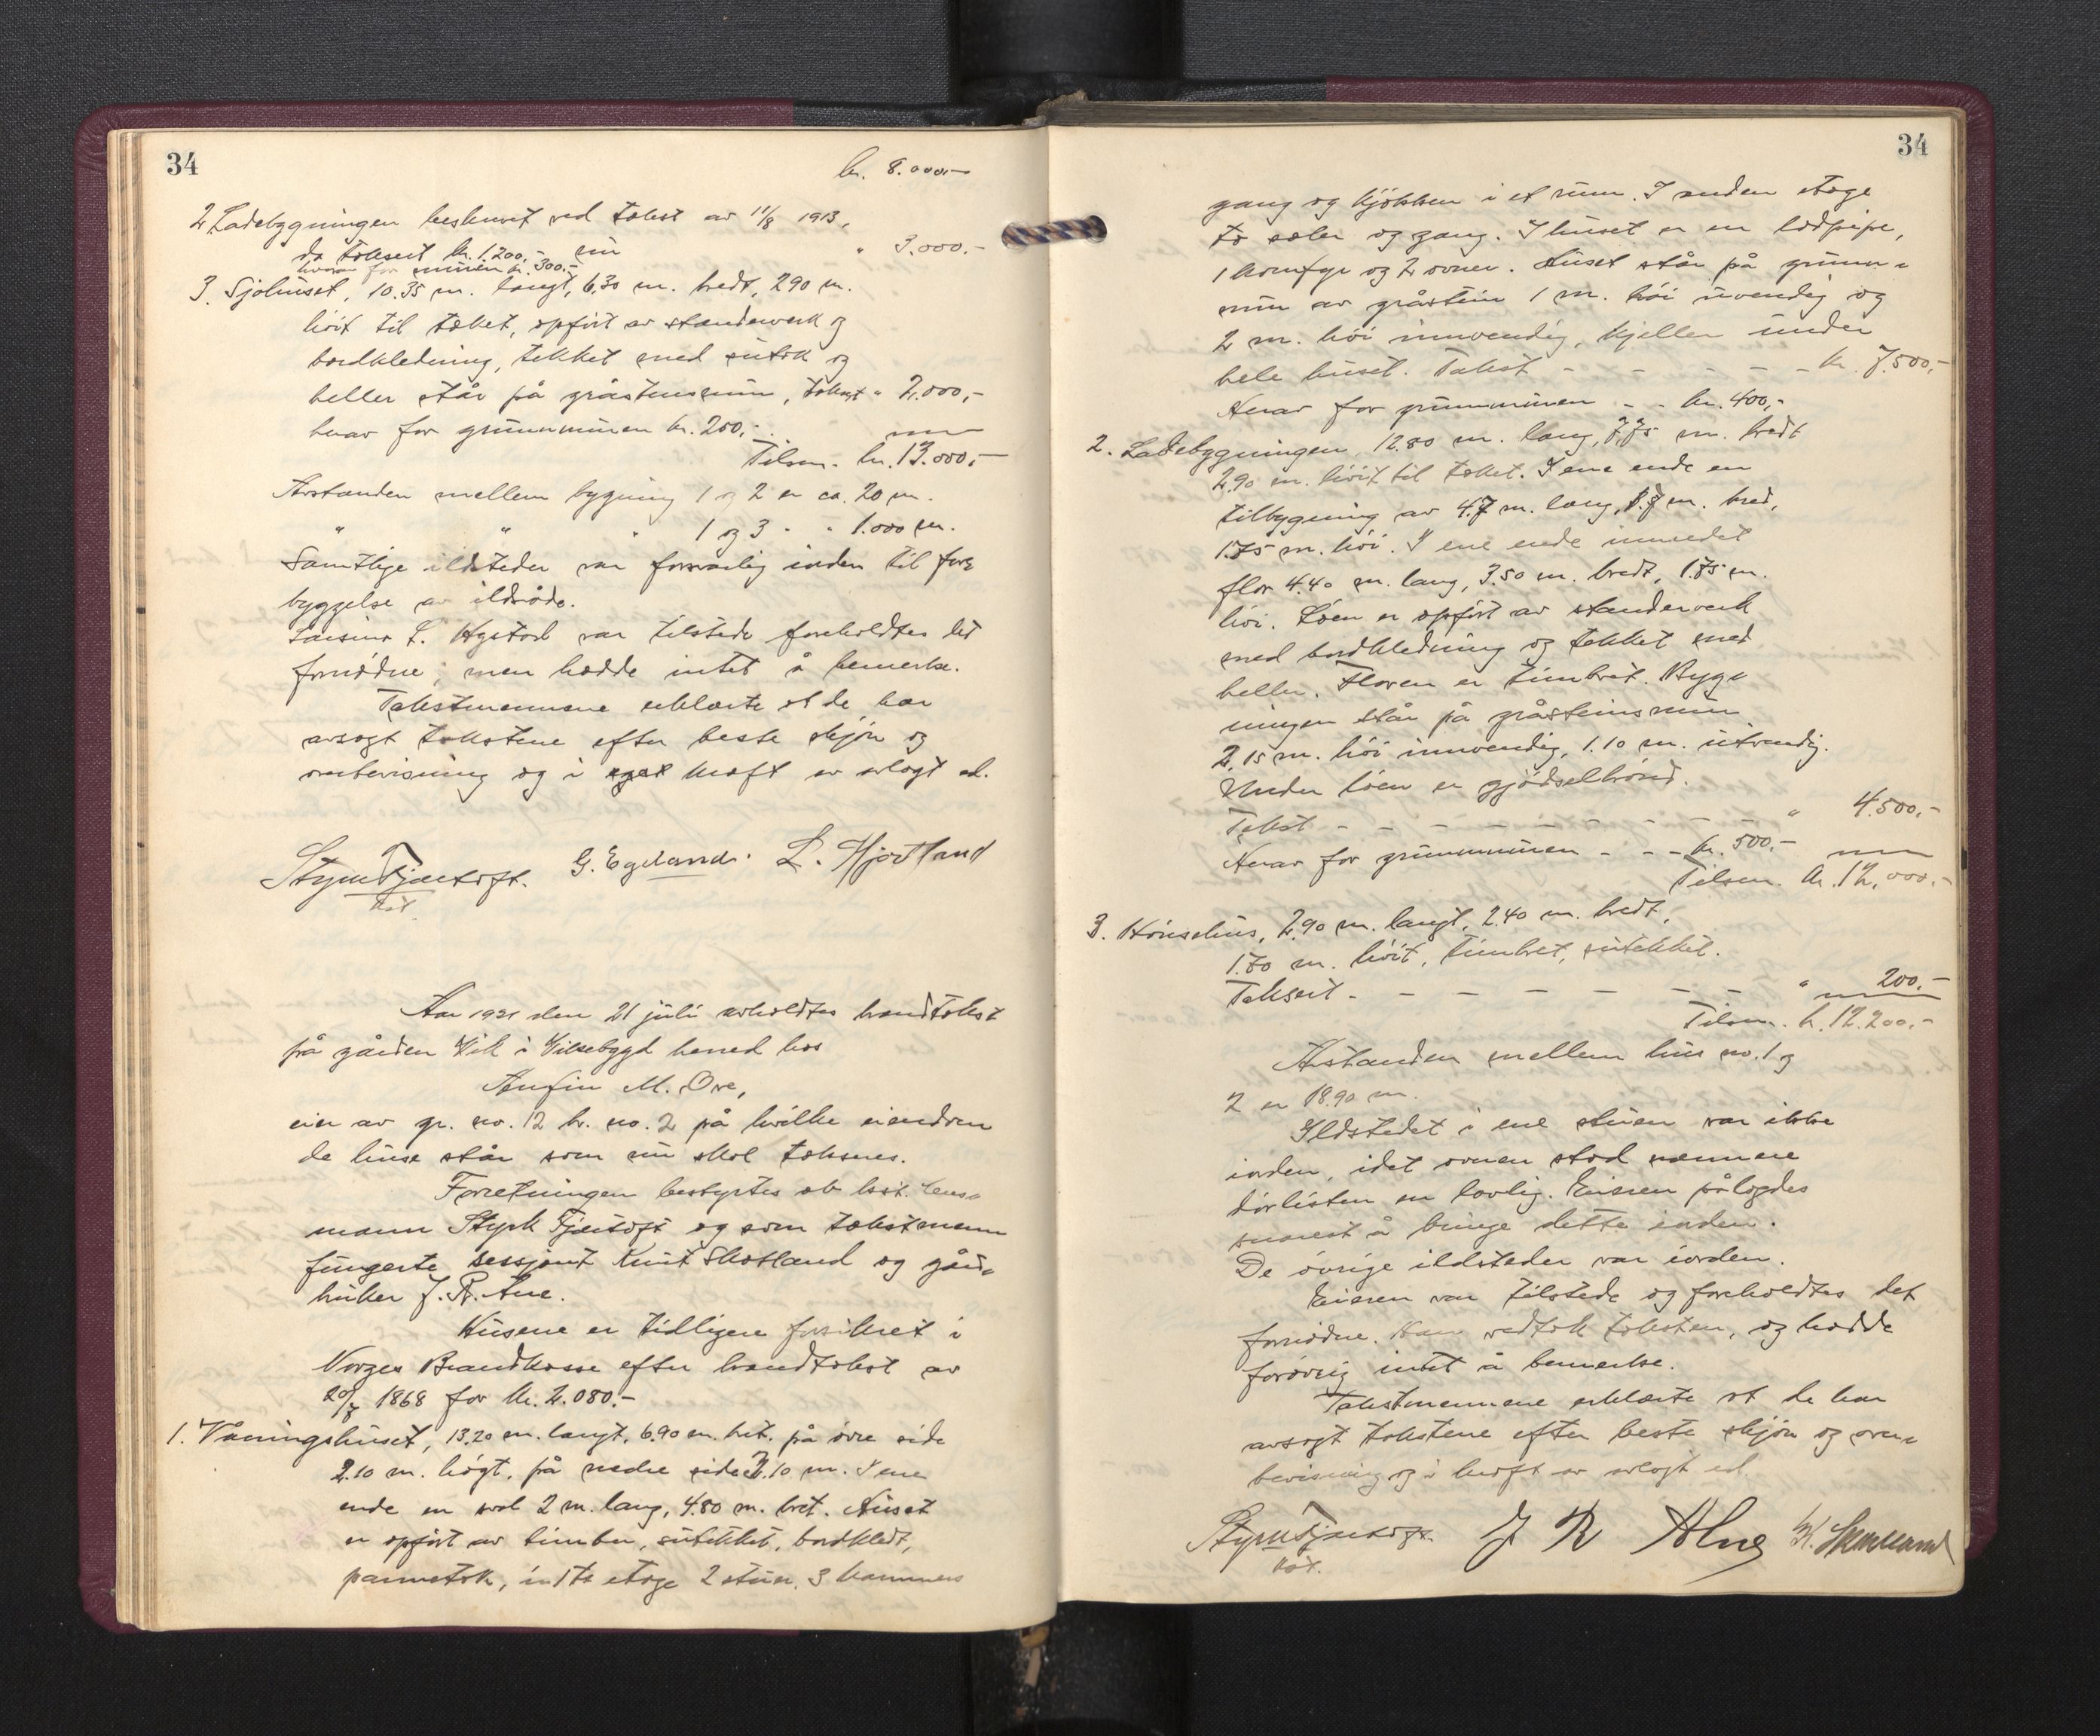 34
kr. 8.000.-
2 Ladebygningen beskrevet ved takst av 11/8 1913,
da taksert kr. 1.200,- nu " 3.000.-
hvorav for muren kr. 300.-
3. Sjøhuset, 10.35 m. langt, 6.30 m. bredt, 290 m.
höit til taket, opfört av standerverk og
bordkledning, tekket med sutak og
heller står på gråstensmur, takst " 2.000,-
hvav for grunnmuren kr. 200,-
Tilsm. kr. 13.000,-
Avstanden mellem bygning 1 og 2 er ca. 20 m.
" " " 1 og 3 " " 1.000 m.
Samtlige ildsteder var forsvarlig inden til fore
byggelse av ildsråde.
L. Hystad var tilstede foreholdtes det
fornødne, men hadde intet å bemerke.
Takstmennene erklærte at de har
avsagt takstene efter beste skjön og
overbevisning og i kraft av avlagt ed.
Styrk Fjærtoft. G. Egeland. L. Hjortland
kst.
Aar 1921 den 21 juli avholdtes brandtakst
på gården Vik i Vikebygd herred hos
Anfin M. Øve,
eier av gr. no. 12 br. no. 2 på hvilke eiendom
de huse står som nu skal takseres.
Forretningen bestyrtes ab kst. lens-
mann Styrk Fjærtoft og som takstmenn
fungerte sersjant Knut Skotland og gård-
bruker J. R. Alne.
Husene er tidligere forsikret i
Norges Brandkasse efter brandtakst av
20/8 1868 for kr. 2.080.-
1. Våningshuset, 13.20 m. langt, 6.90 m. bret. på øvre side
2.10 m. högt, på nedre side 3.10 m. I ene
ende en sval 2 m. lang, 4.80 m. bret. Huset
er opfört av timber, sutekket, bordkledt,
pannetak, in 1ste etage 2 stuer, 3 kammers
34
gang og kjökken i et rum. I anden etage
to saler og gang. I huset er en lodpipe,
1 komfyr og 2 ovner. Huset står på grunn-
mur av gråstein 1 m. höi uvendig og
2 m. höi innvendig, kjeller under
hele huset. Takst - - - - - - kr. 7.500,-
Herav for grunnmuren - - kr. 400,-
2. Ladebygningen, 12.80 m. lang, 7,75 m. bredt
2.90 m. höit til taket. I ene ende en
tilbygning av 4.7 m. lang, m. bred,
1.75 m. höi. I ene ende innredet
flor 4.40 m. lang, 3.50 m. bredt, 1.75 m.
höi. Löen er opfört av standerverk
med bordkledning og tekket med
heller. Floren er timbret. Byg-
ningen står på gråsteinsmur
2,15 m. höi innvendig, 1.10 m. utvendig.
Under löen er gjödselbrönd.
Takst - - - - - - - - - - " 4.500,-
Herav for grunnmuren - - - kr. 500.-
Tilsm. kr. 12,000.-
3. Hönsehus, 2.90 m. langt, 2.40 m. bredt,
1.80 m. höit, timbret, sutekket.
Taksert - - - - - - - - " 200,-
Tilsm. k. 12.200,-
Avstanden mellem hus no. 1 og
2 er 18.90 m.
Ildstedet i ene stuen var ikke
iorden, idet ovnen stod nærmere
dörlisten en lovlig. Eieren pålagdes
snarest å bringe dette iorden.
De övrige ildsteder var iorden.
Eieren var tilstede og foreholdtes det
fornødne. Han vedtok taksten, og hadde
forövrig intet å bemerke.
Takstmennene erklærte at de har
avsagt takstene efter beste skjön og over-
bevisning og i kraft av avlagt ed.
Styrk Fjærtoft J R Alne K. Skotland
kst.